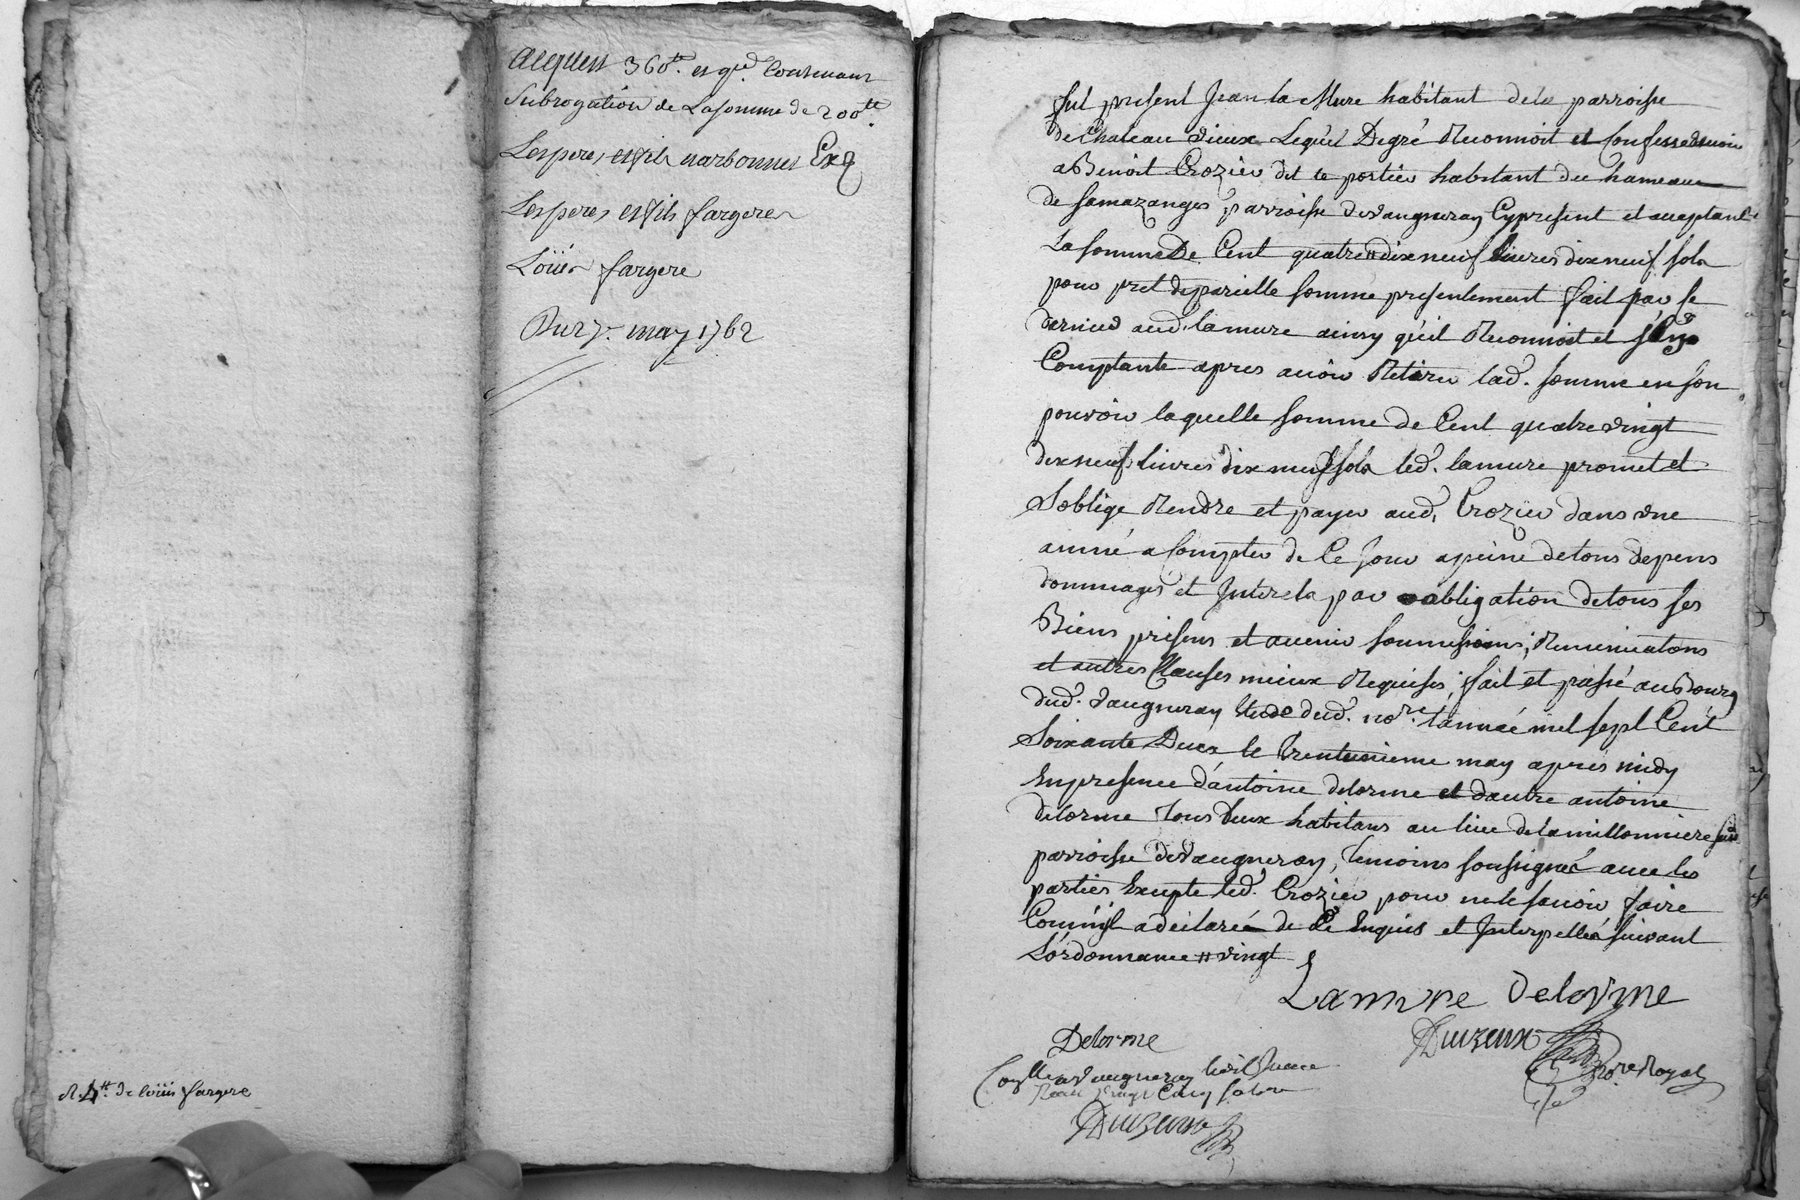 acquen 360tt. et qd. Contenant
Subrogation de La somme de 200tt.
Les peres et fils narbonnes
Les peres et fils fargere
Loüis fargere
Du 7e. may 1762
R. 4tt. de loüis fargere
fut present Jean la Mure habitant de la parroisse
de Chateau vieux Lequel De gré Reconnoit et Confesse devoir
a Benoit Crozier dit le portier habitant du hameau
de samazanges parroisse de vaugneray Cy present et acceptant
La somme De Cent quatre # dix neuf livres dix neuf sols
pour pret de pareille somme presentement fait par se
dernier aud. lamure ainsy qu'il Reconnoit et s'en
Comptante apres avoir Retiré lad. somme en son
pouvoir laquelle somme de Cent quatre vingt
dix neuf livres dix neuf sols led. lamure promet et
s'oblige Rendre et payer aud. Crozier dans une
année a Compter de Ce Jour a peine de tous depens
dommages et Interets par obligation de tous ses
Biens presens et avenir soumissions, Renunciations
et autres Clauses mieux Requises, fait et passé au Bourg
dud. vaugneray Etude dud. nore. l'année mil sept Cent
soixante Deux le trentunieme may apres midy
En presence d'antoine delorme et d'autre antoine
delorme Tous deux habitans au lieu de la millonniere sud.
parroisse de vaugneray, temoins soussignés avec les
parties Excepté led. Crozier pour ne le savoir faire
Comm'il a declaré de Ce Enquis et Interpellé suivant
L'ordonnance # vingt
Lamure Delorme
Delorme
Duzeux
Nore Royal
Conlle a vaugneray le dix Juin
Reçu vingt Cinq sols
Duzeux